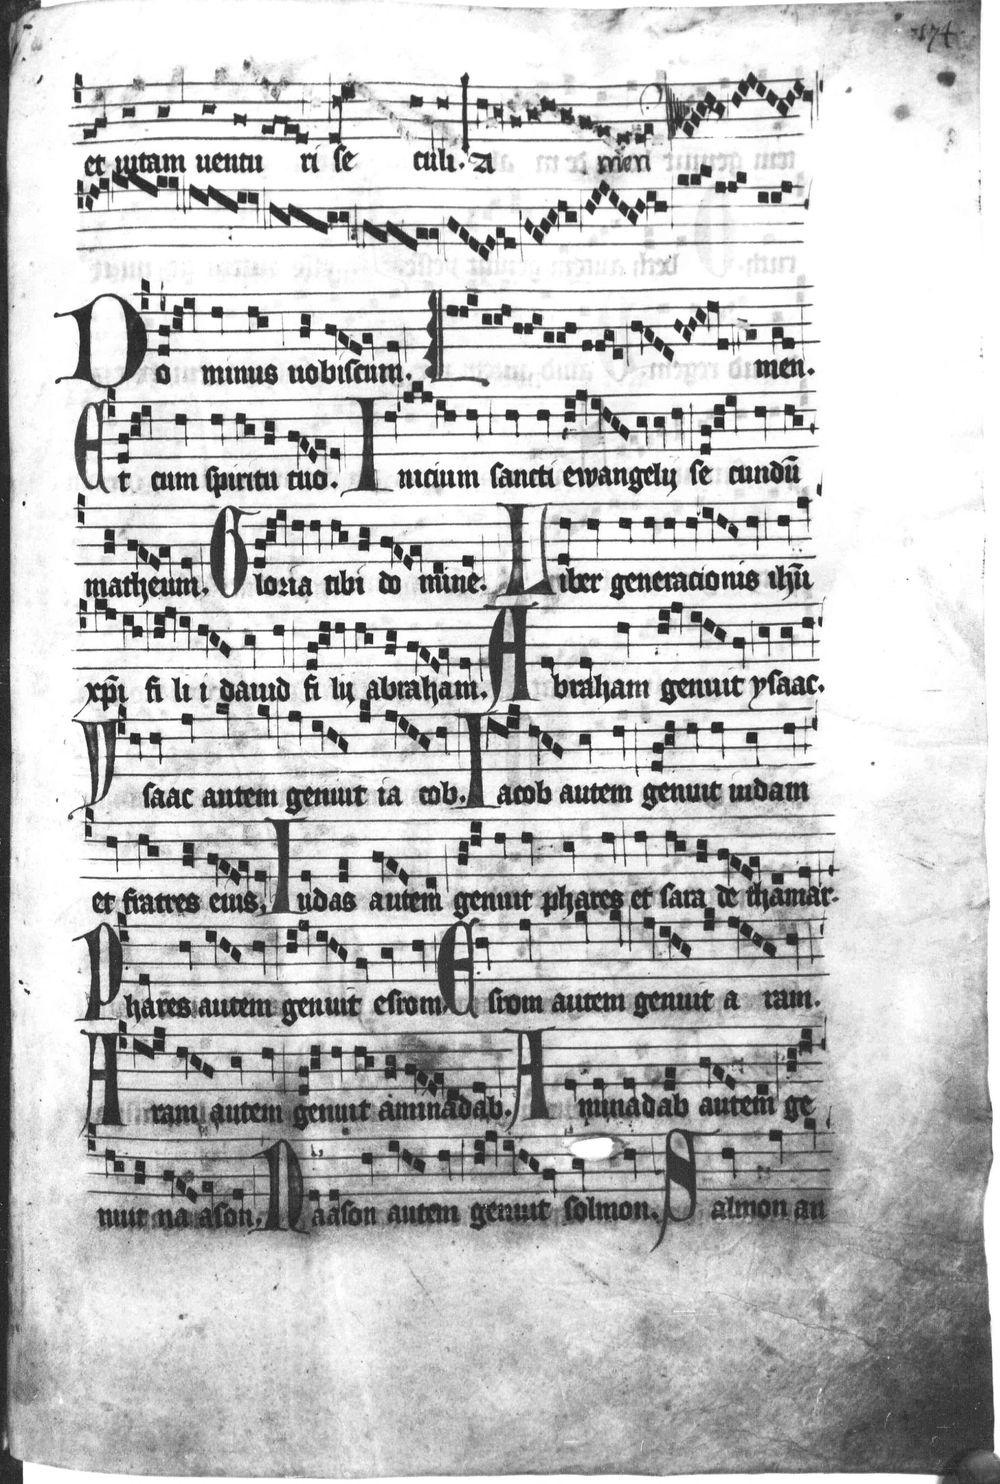 174
et uitam uentu ri se culi. A men
Do minus uobiscum. L men.
Et cum spiritu tuo. Inicium sancti ewangelij se cundū
matheum. Gloria tibi do mine. Liber generacionis ihū
xp̄i fi li i dauid fi lij abraham. Abraham genuit ysaac.
Ysaac autem genuit ia cob. Iacob autem genuit iudam
et fratres eius. Iudas autem genuit phares et sara de thamar.
Phares autem genuit esrom. Esrom autem genuit a ram.
Aram autem genuit aminadab. Aminadab autem ge
nuit na ason. Naason autem genuit solmon. Salmon au